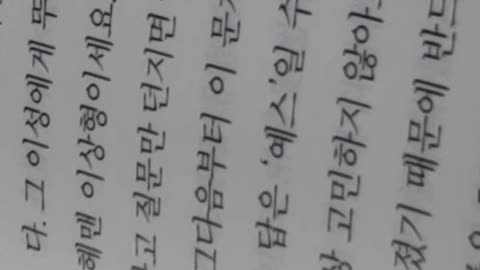 다. 그 이성에게 무
헤맨 이상형이세요.
고 질문만 던지면
그다음부터 이 문
답은 '예스'일 수
고민하지 않아
졌기 때문에 반드